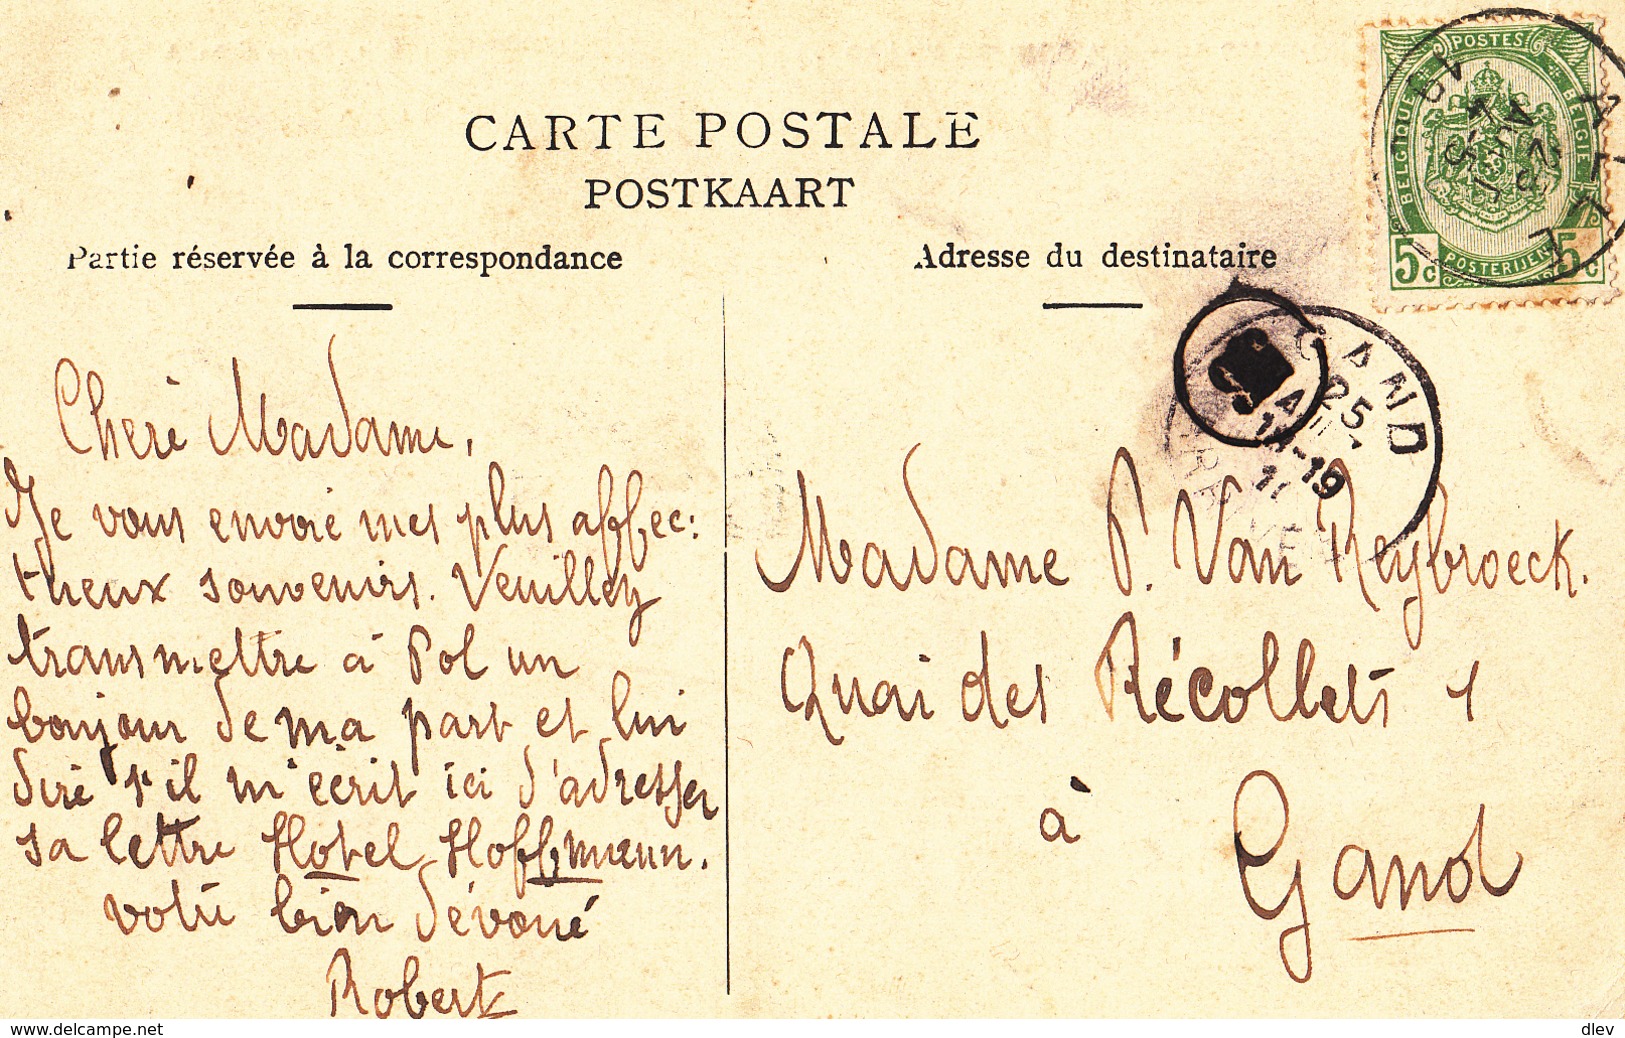 CARTE POSTALE
POSTKAART
Partie réservée à la correspondance
Adresse du destinataire
POSTES
BELGIQUE
BELGIË
POSTERIJEN
5c 5c
GAND
25
18-19
Cheré Madame,
Je vous envoie mes plus affec:
tueux souvenirs. Veuillez
transmettre à Pol un
bonjour de ma part et lui
dire s'il m'écrit ici d'adresser
sa lettre Hotel Hoffmann.
votre bien dévoué
Robert
Madame P. Van Reybroeck.
Quai des Récollets 1
à
Gand
www.delcampe.net
dlev